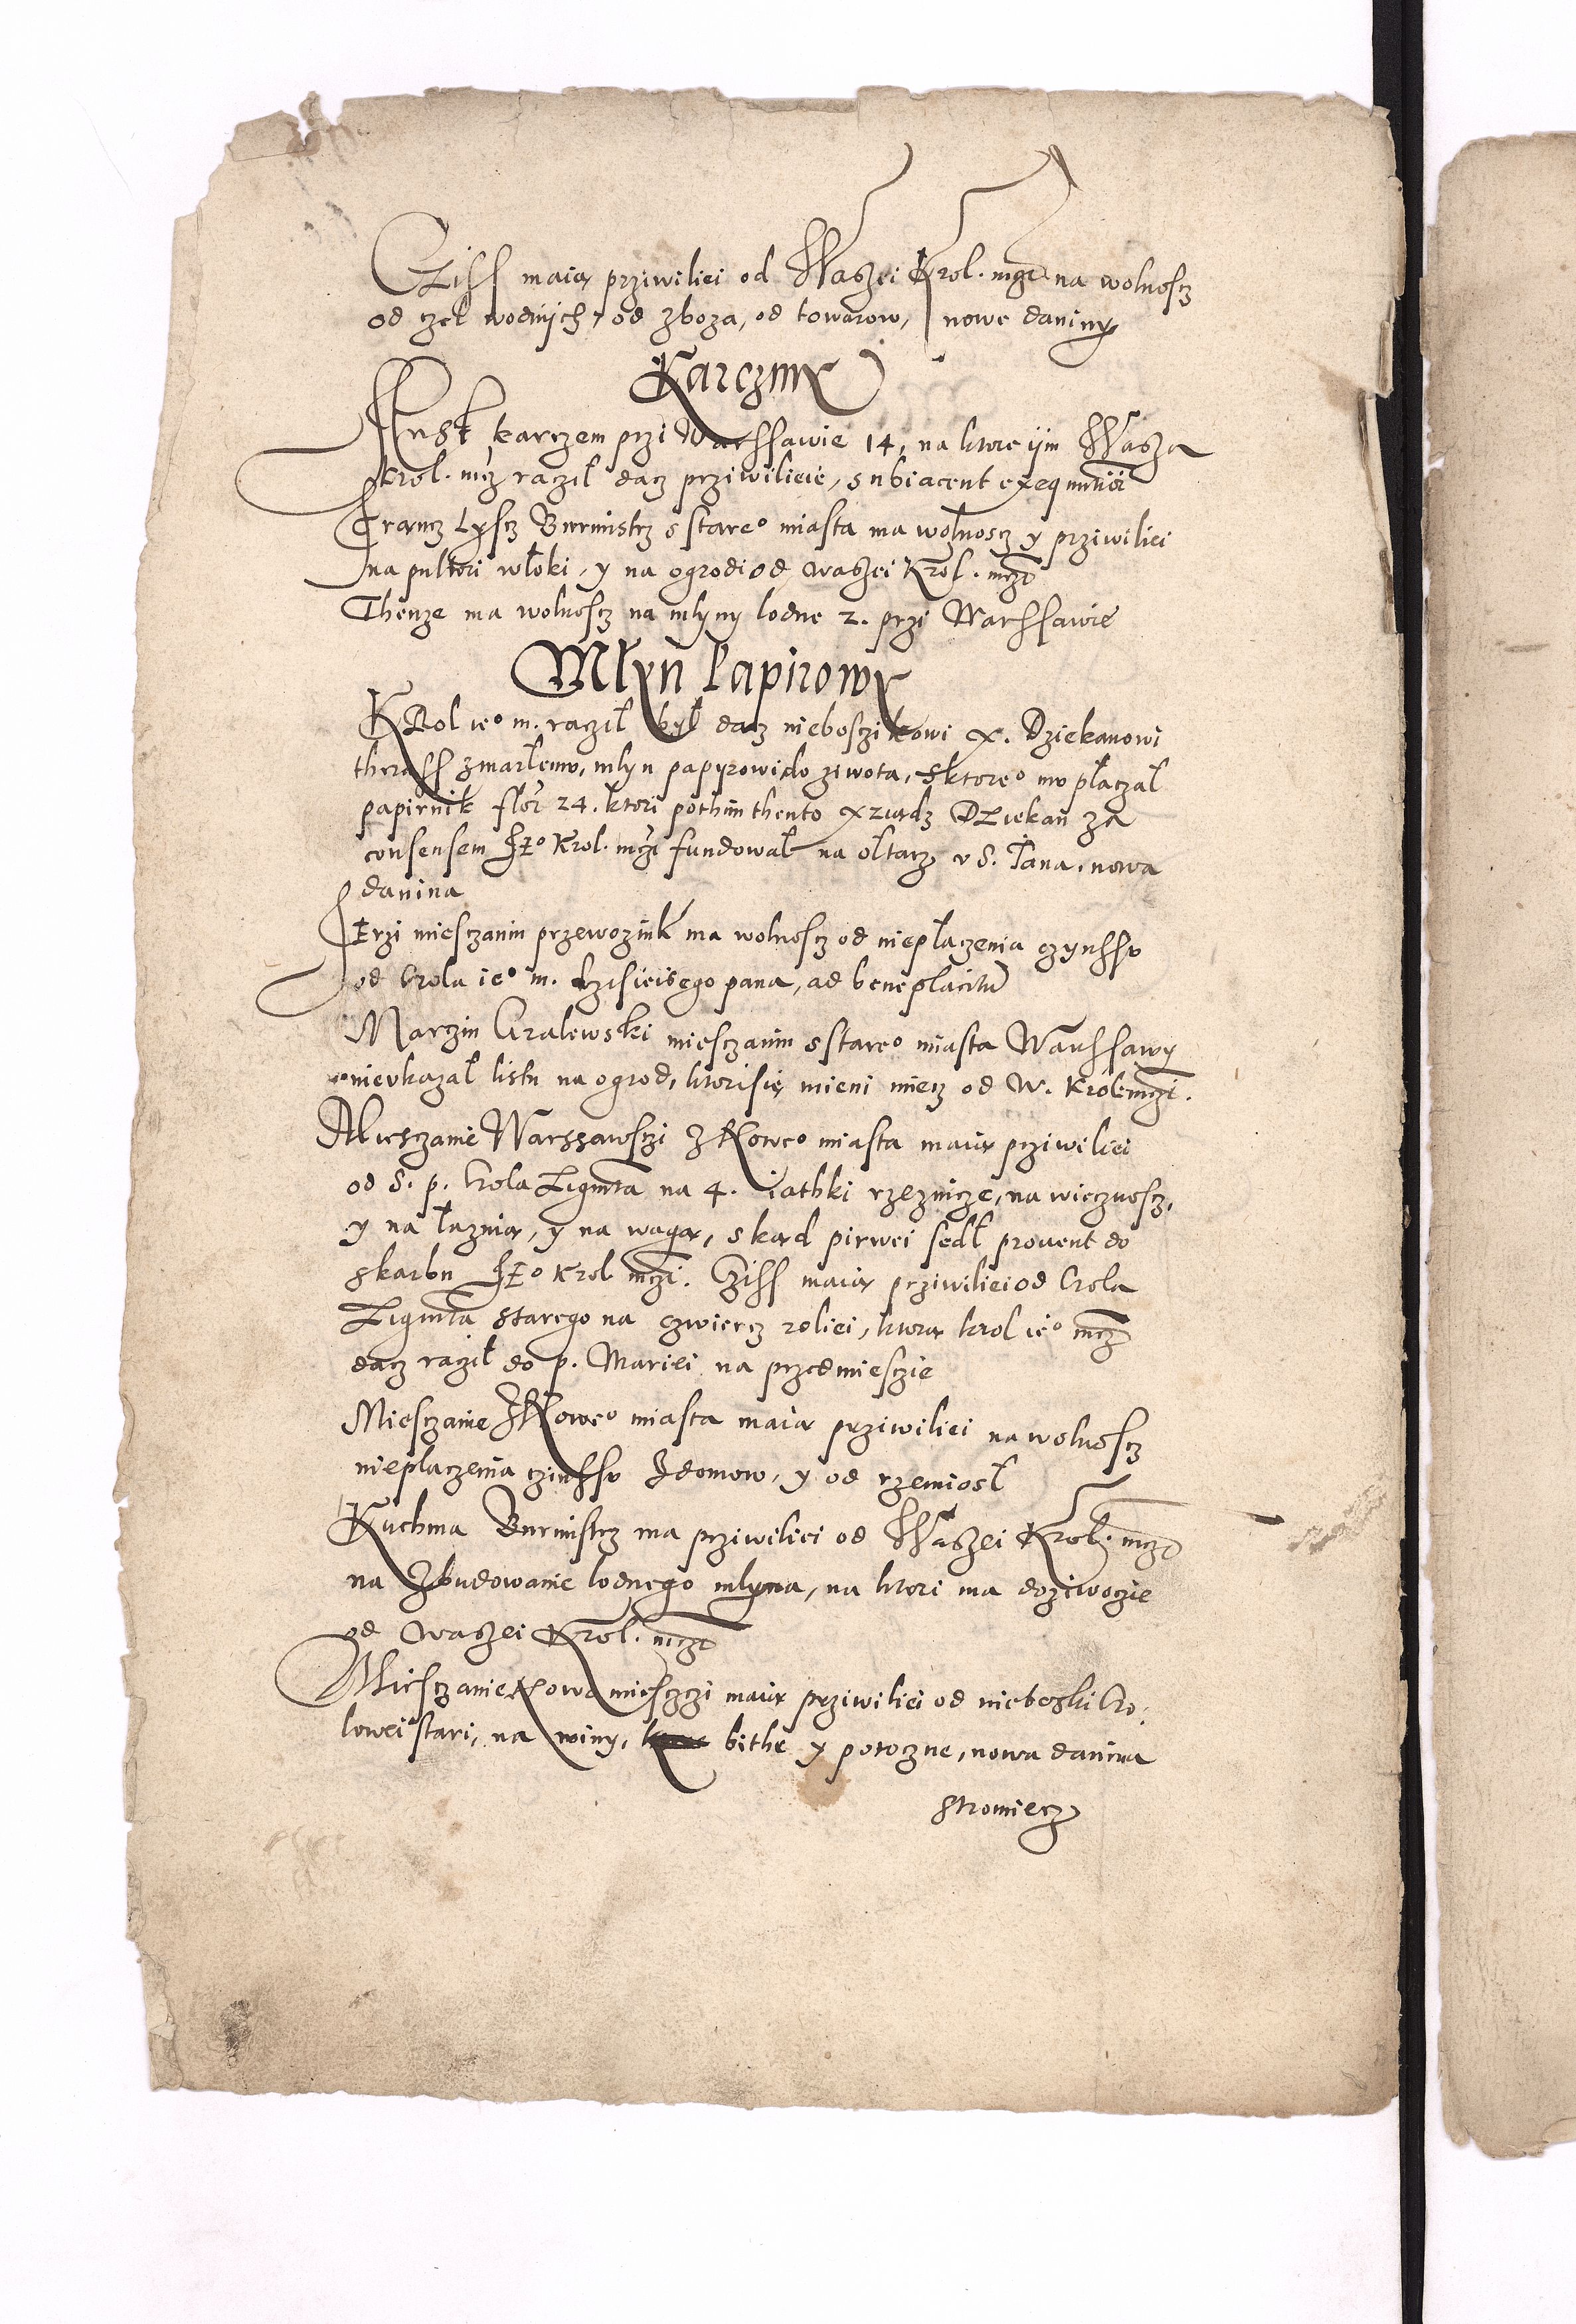 Cziss maią prziwiliei od Waszei Krol. mczi na wolnoscz
od czel wodnych, od zboza, od towarow, nowe daniny
Karczmy
Jest karczem przi Warssawie 14, na ktore ijm Wasza
Krol. mcz raczil dacz prziwilieie, subiacent exequutioi
Francz Lyscz Burmistrz s stare⁰ miasta ma wolnoscz y prziwiliei
na pultori wloki, y na ogrodi od Waszei Krol. mczi
Thenze ma wolnoscz na mlyny lodne 2. przi Warssawie
Młyn Papirowy
KRol ie⁰ m. raczil był dacz nieboszikowi x. Dziekanowi
therass zmarłemv, mlyn papyrowi do ziwota, s ktore⁰ mv placzal
papirnik flor 24. ktori pothim thento xziądz Dziekan za
consensem JE⁰ Krol. mczi fundował na oltarz v S. Jana, nowa
danina
Jerzi miesczanin przewoznik ma wolnoscz od nieplaczenia czynssv
od Crola ie⁰ m. dzisieisego pana, ad beneplacitu
Marczin Gralewski miesczanin s stare⁰ miasta Warssawy
nievkazal listu na ogrod, ktori się mieni miecz od W. Krol. mczi.
Miesczanie Warssawsczi z Nowe⁰ miasta maią prziwiliei
od S. p. Crola Zigmta na 4. iathki rzeznicze, na wiecznoscz,
y na łaznią, y na wagą, skąd pirwei sedł prouent do
skarbu JE⁰ Krol mczi. Cziss maią prziwiliei od Crola
Zigmta starego na czwiercz roliei, ktorą krol ie⁰ mcz
dacz raczil do p. Mariei na przedmiesczie
Miesczanie z Nowe⁰ miasta maią prziwiliei na wolnoscz
nieplaczenia czinssv z domow, y od rzemiosl
Kuchma Burmistrz ma prziwiliei od Waszei Krol. mczi
na zbudowanie lodnego mlyna, na ktori ma dozywoczie
od Waszei Krol. mczi
Miesczanie Nowomiesczczi maią prziwiliei od nieboski Cro:
lowei stari, na winy, bithe y potoczne, nowa danina
Stromiecz